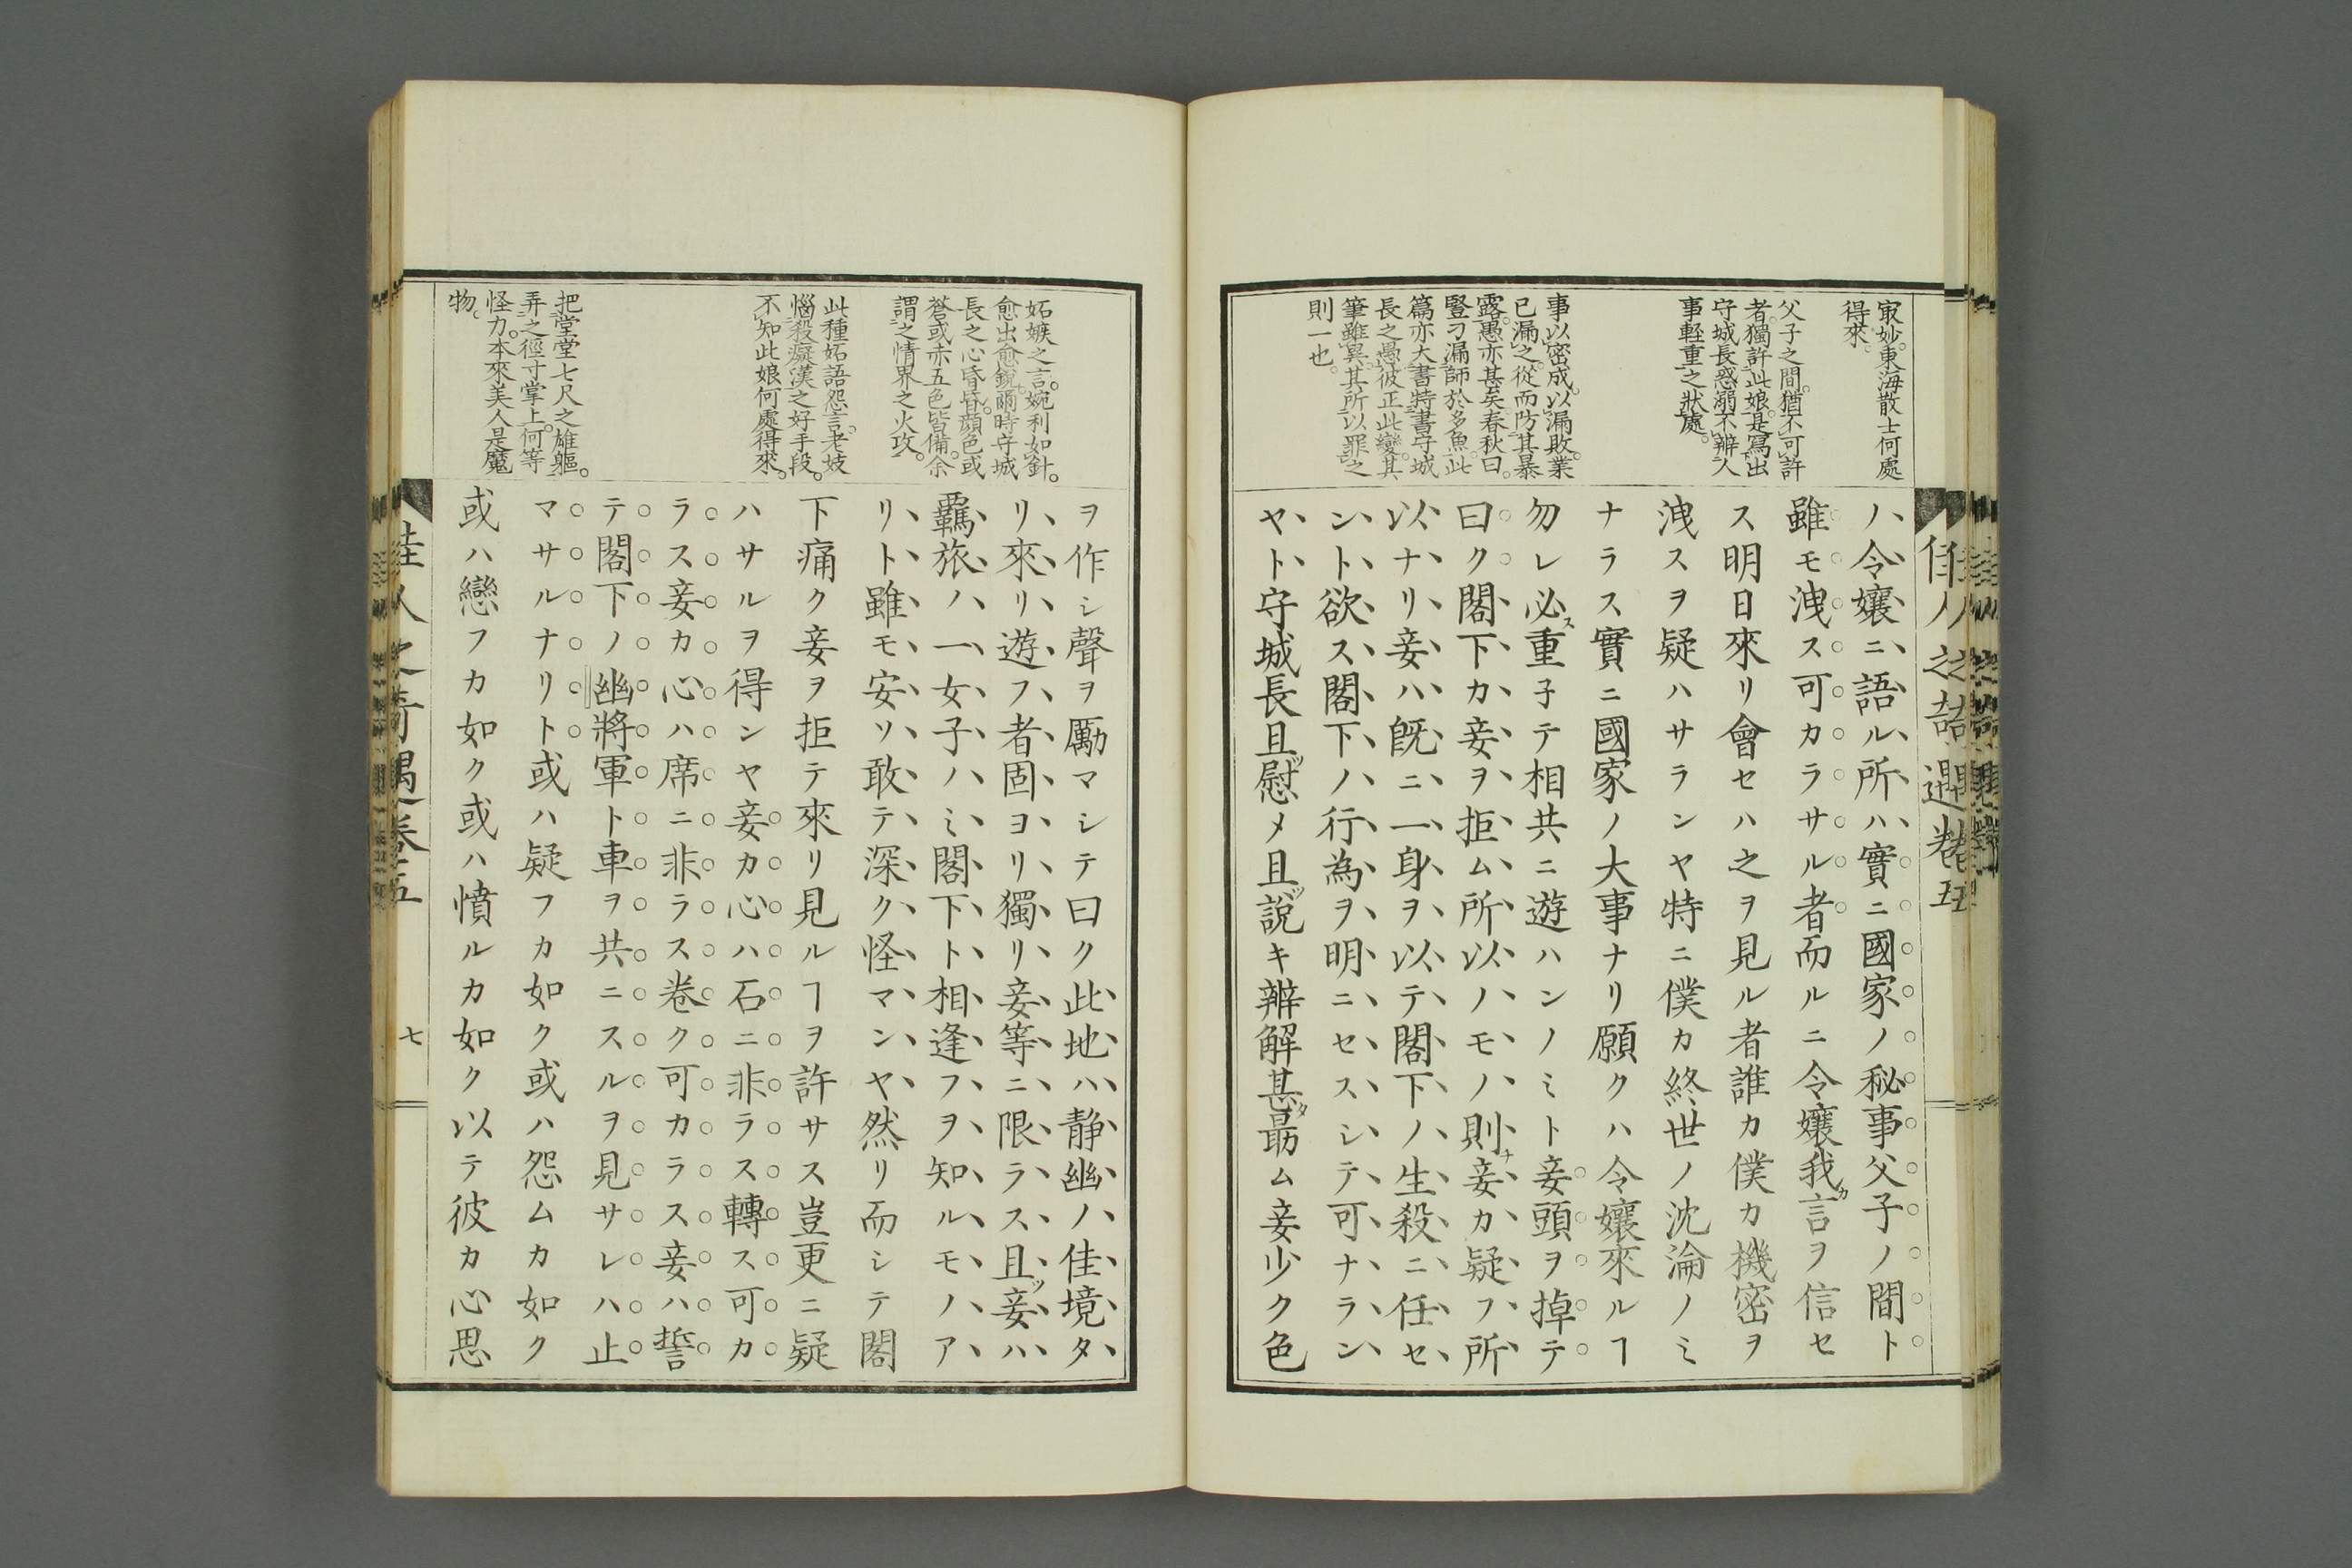 佳人之奇遇卷五
寂妙東海散士何處
得來。
父子之間。猶不可許
者。獨許此娘。是寫出
守城長惑溺不辨人
事軽重之狀處。
事以密成。以漏敗。業
已漏之。從而防其暴
露。愚亦甚矣。春秋曰。
豎刁漏師於多魚。此
篇亦大書特書守城
長之愚。彼正此變。其
筆雖異。其所以罪之
則一也。
ハ令孃ニ語ル所ハ實ニ國家ノ秘事父子ノ間ト
雖モ洩ス可カラサル者而ルニ令孃我カ言ヲ信セ
ス明日來リ會セハ之ヲ見ル者誰カ僕カ機密ヲ
洩スヲ疑ハサランヤ特ニ僕カ終世ノ沈淪ノミ
ナラス實ニ國家ノ大事ナリ願クハ令孃來ルヿ
勿レ必ス重子テ相共ニ遊ハンノミト妾頭ヲ掉テ
曰ク閣下カ妾ヲ拒ム所以ノモノ則チ妾カ疑フ所
以ナリ妾ハ既ニ一身ヲ以テ閣下ノ生殺ニ任セ
ント欲ス閣下ノ行為ヲ明ニセスシテ可ナラン
ヤト守城長且ツ慰メ且ツ說キ辨解甚タ最ム妾少ク色
妬嫉之言。婉利如針。
愈出愈銳。爾時守城
長之心昏昏。顔色或
蒼或赤五色皆備。余
謂之情界之火攻。
此種妬語怨言。老妓
惱殺癡漢之好手段。
不知此娘何處得來。
把堂堂七尺之雄軀。
弄之徑寸掌上。何等
怪力。本來美人是魔
物。
ヲ作シ聲ヲ勵マシテ曰ク此地ハ静幽ノ佳境タ
リ來リ遊フ者固ヨリ獨リ妾等ニ限ラス且ツ妾ハ
羈旅ノ一女子ノミ閣下ト相逢フヲ知ルモノア
リト雖モ安ソ敢テ深ク怪マンヤ然リ而シテ閣
下痛ク妾ヲ拒テ來リ見ルヿヲ許サス豈更ニ疑
ハサルヲ得ンヤ妾カ心ハ石ニ非ラス轉ス可カ
ラス妾カ心ハ席ニ非ラス卷ク可カラス妾ハ誓
テ閣下ノ幽將軍ト車ヲ共ニスルヲ見サレハ止
マサルナリト或ハ疑フカ如ク或ハ怨ムカ如ク
或ハ戀フカ如ク或ハ憤ルカ如ク以テ彼カ心思
佳人之奇遇卷五
七